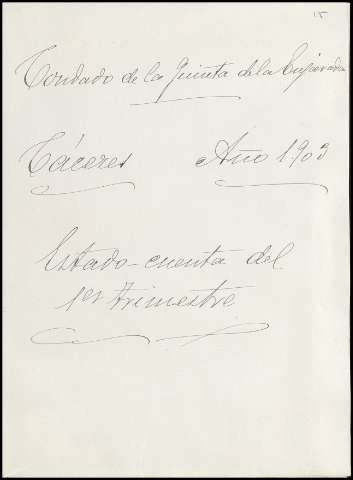 15
Condado de la Quinta de la Enjarada
Cáceres Año 1.903
Estado-cuenta del
1er trimestre